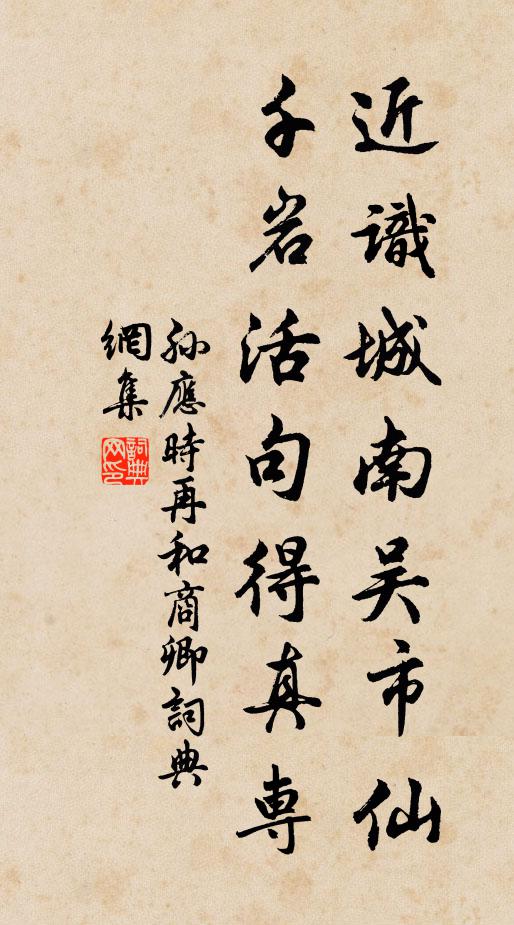 近識城南吴市仙
千岩活句得真專
孙應時再和商卿詞典
網集
詞典网印